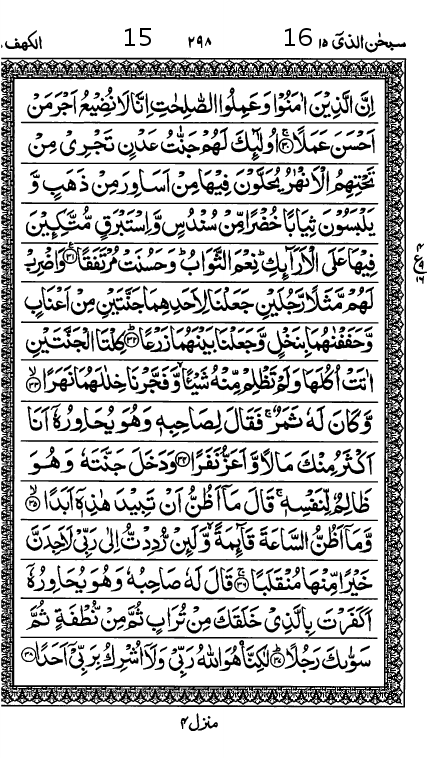 سبحٰن الذیٓ ۱۵ 16 ۲۹۸ 15 الکهف
اِنَّ الَّذِيْنَ اٰمَنُوْا وَعَمِلُوا الصّٰلِحٰتِ اِنَّا لَا نُضِيْعُ اَجْرَ مَنْ
اَحْسَنَ عَمَلًا ۚ‏﴿۳۰﴾ اُولٰٓئِكَ لَهُمْ جَنّٰتُ عَدْنٍ تَجْرِىْ مِنْ
تَحْتِهِمُ الْاَنْهٰرُ يُحَلَّوْنَ فِيْهَا مِنْ اَسَاوِرَ مِنْ ذَهَبٍ وَّ
يَلْبَسُوْنَ ثِيَابًا خُضْرًا مِّنْ سُنْدُسٍ وَّاِسْتَبْرَقٍ مُّتَّكِـِٕيْنَ
فِيْهَا عَلَى الْاَرَآئِكِ ؕ نِعْمَ الثَّوَابُ ؕ وَحَسُنَتْ مُرْتَفَقًا ﴿۳۱﴾ وَاضْرِبْ
لَهُمْ مَّثَلًا رَّجُلَيْنِ جَعَلْنَا لِاَحَدِهِمَا جَنَّتَيْنِ مِنْ اَعْنَابٍ
وَّحَفَفْنٰهُمَا بِنَخْلٍ وَّجَعَلْنَا بَيْنَهُمَا زَرْعًا ؕ‏﴿۳۲﴾ كِلْتَا الْجَنَّتَيْنِ
اٰتَتْ اُكُلَهَا وَلَمْ تَظْلِمْ مِّنْهُ شَيْـًٔا ۙ وَّفَجَّرْنَا خِلٰلَهُمَا نَهَرًا ۙ‏﴿۳۳﴾
وَّكَانَ لَهٗ ثَمَرٌ ۚ فَقَالَ لِصَاحِبِهٖ وَهُوَ يُحَاوِرُهٗۤ اَنَا
اَكْثَرُ مِنْكَ مَالًا وَّاَعَزُّ نَفَرًا ﴿۳۴﴾ وَدَخَلَ جَنَّتَهٗ وَهُوَ
ظَالِمٌ لِّنَفْسِهٖ ۚ قَالَ مَاۤ اَظُنُّ اَنْ تَبِيْدَ هٰذِهٖۤ اَبَدًا ۙ‏﴿۳۵﴾
وَّمَاۤ اَظُنُّ السَّاعَةَ قَآئِمَةً ۙ وَّلَئِنْ رُّدِدْتُّ اِلٰى رَبِّىْ لَاَجِدَنَّ
خَيْرًا مِّنْهَا مُنْقَلَبًا ۚ‏﴿۳۶﴾ قَالَ لَهٗ صَاحِبُهٗ وَهُوَ يُحَاوِرُهٗۤ
اَكَفَرْتَ بِالَّذِىْ خَلَقَكَ مِنْ تُرَابٍ ثُمَّ مِنْ نُّطْفَةٍ ثُمَّ
سَوّٰٮكَ رَجُلًا ؕ‏﴿۳۷﴾ لٰـكِنَّا۟ هُوَ اللّٰهُ رَبِّىْ وَلَاۤ اُشْرِكُ بِرَبِّىْۤ اَحَدًا ﴿۳۸﴾
منزل ۴